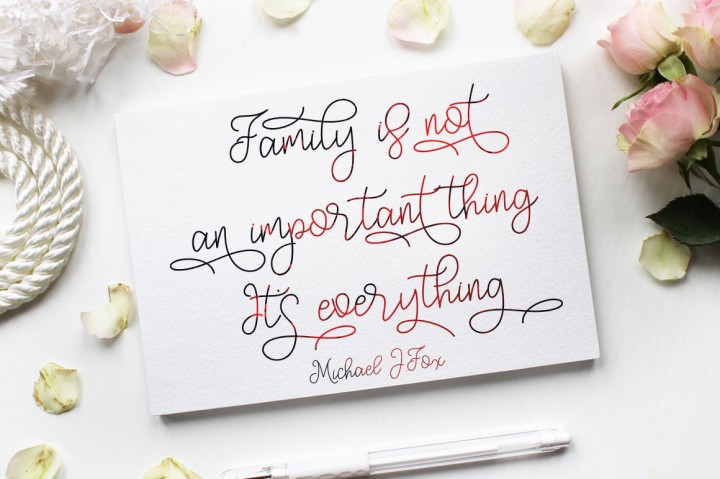 Family is not
an important thing
It's everything
Michael J Fox